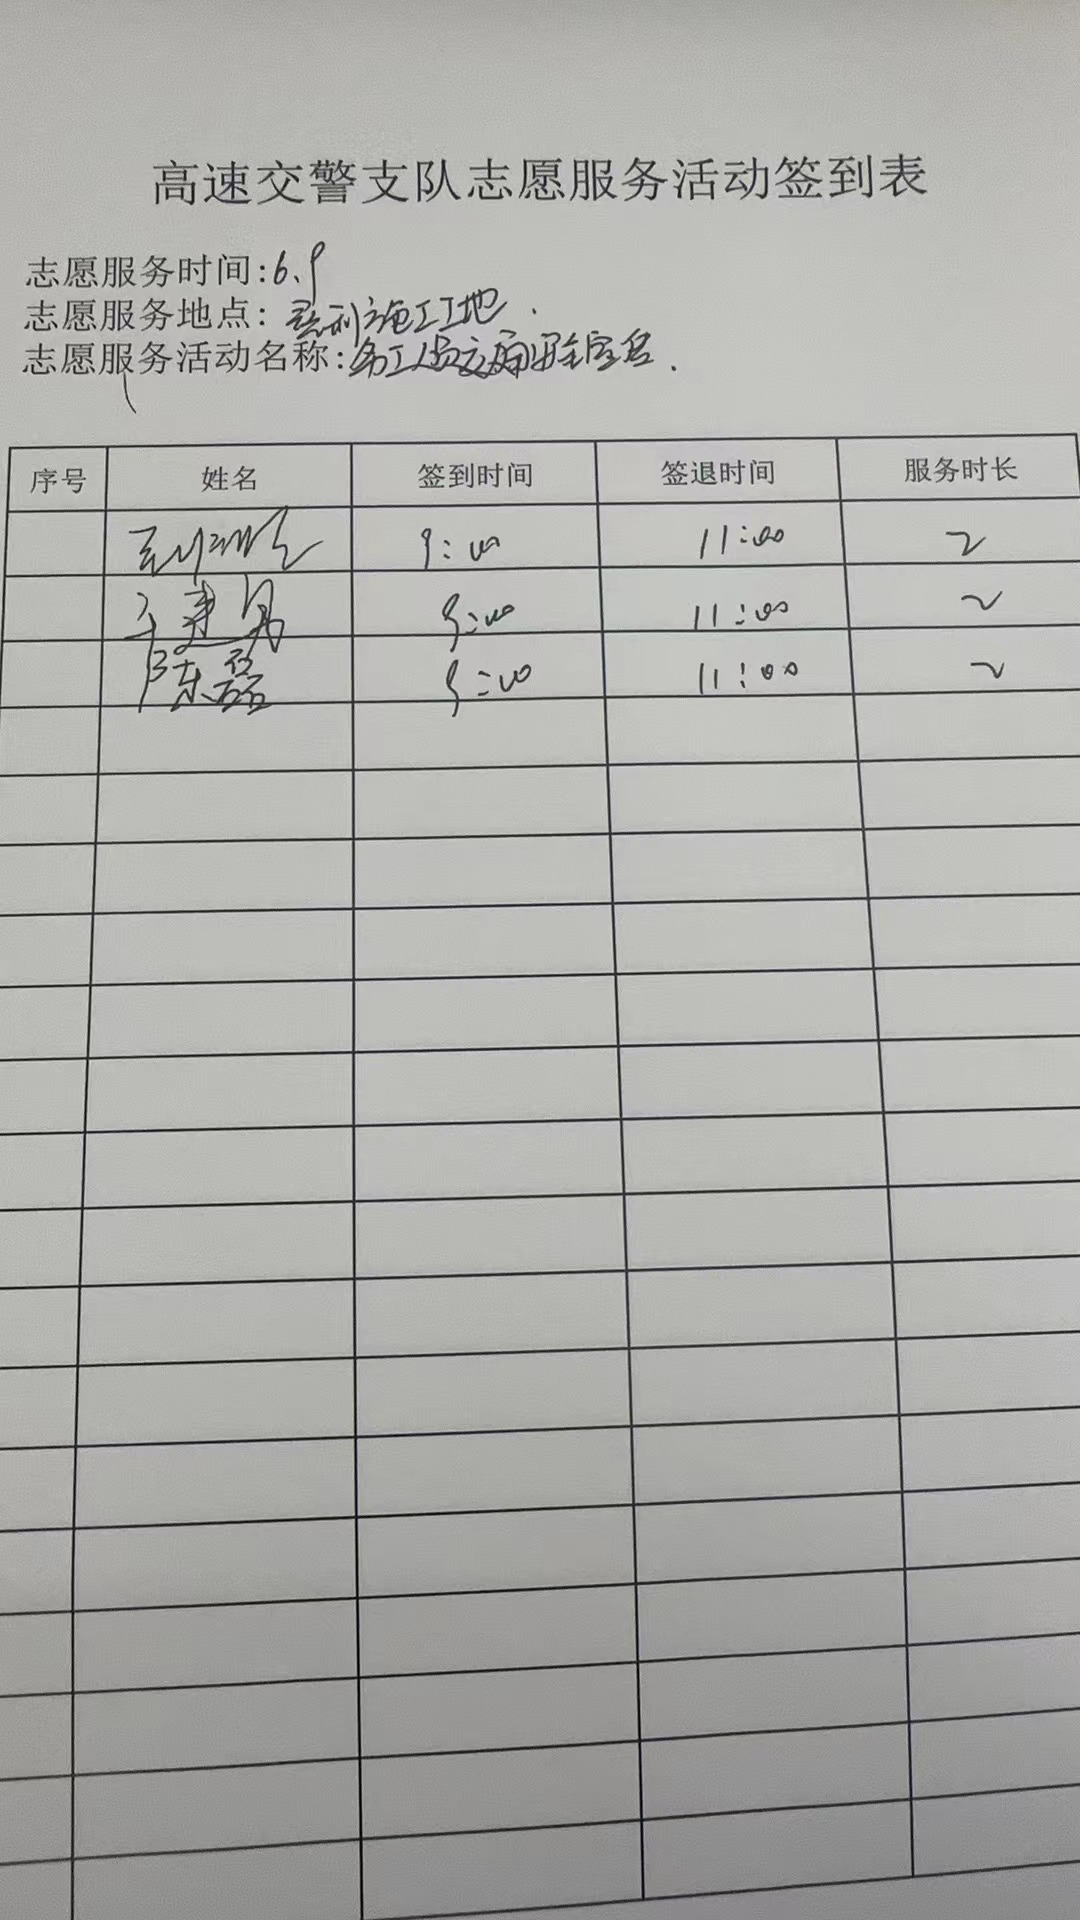 高速交警支队志愿服务活动签到表
志愿服务时间:6.9
志愿服务地点:利施工工地.
志愿服务活动名称:务工人员交通安全宣
序号 姓名 签到时间 签退时间 服务时长
9:00 11:00 2
9:00 11:00 2
陈磊 9:00 11:00 2